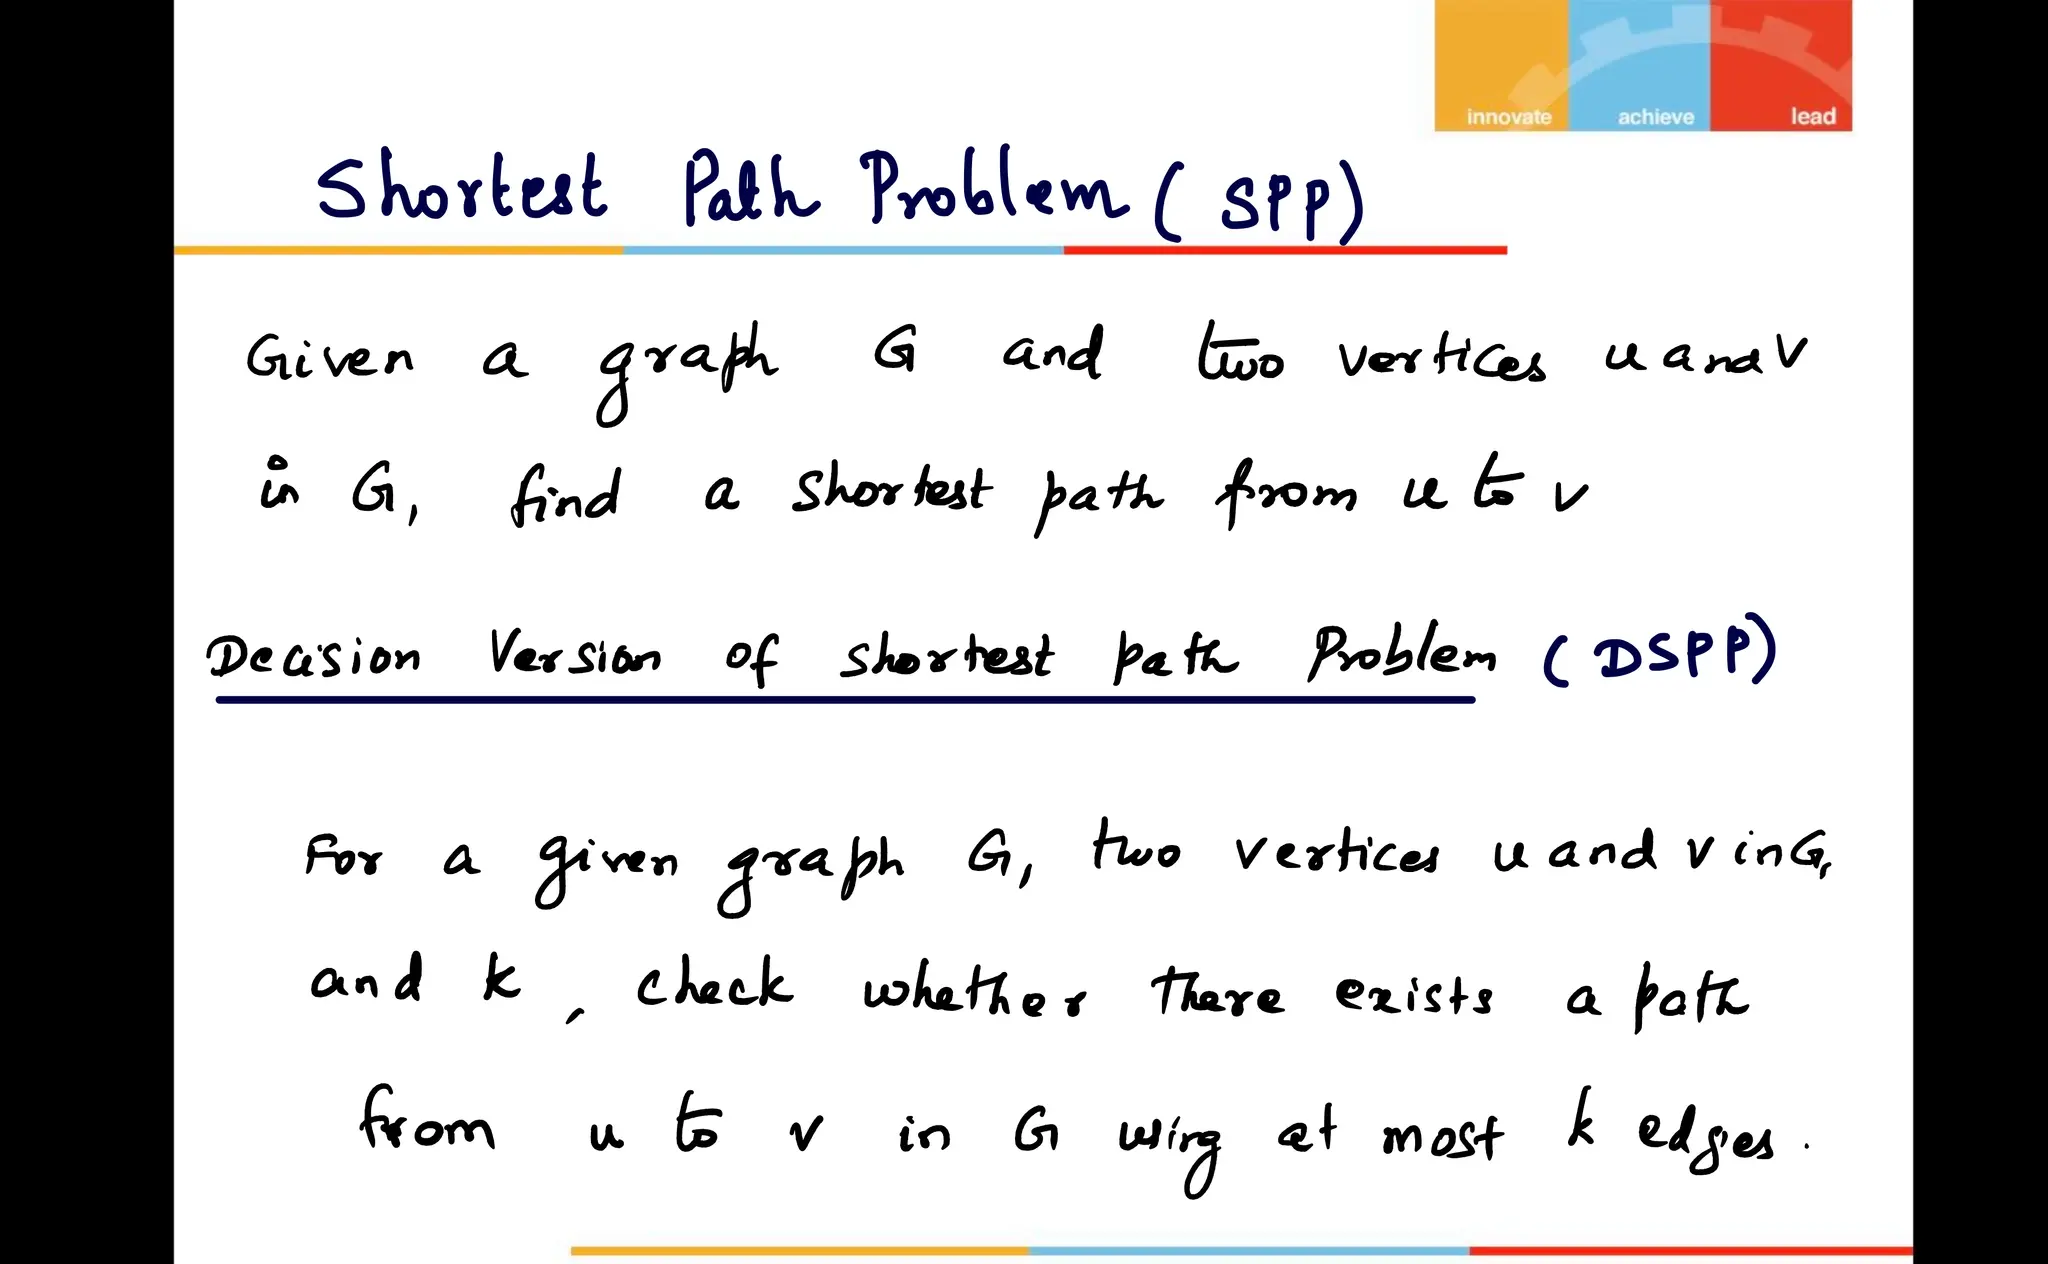 innovate achieve lead
Shortest Path Problem (SPP)
Given a graph G and two vertices u and v
in G, find a shortest path from u to v
Decision Version of shortest path Problem (DSPP)
For a given graph G, two vertices u and v in G,
and k, check whether there exists a path
from u to v in G using at most k edges.